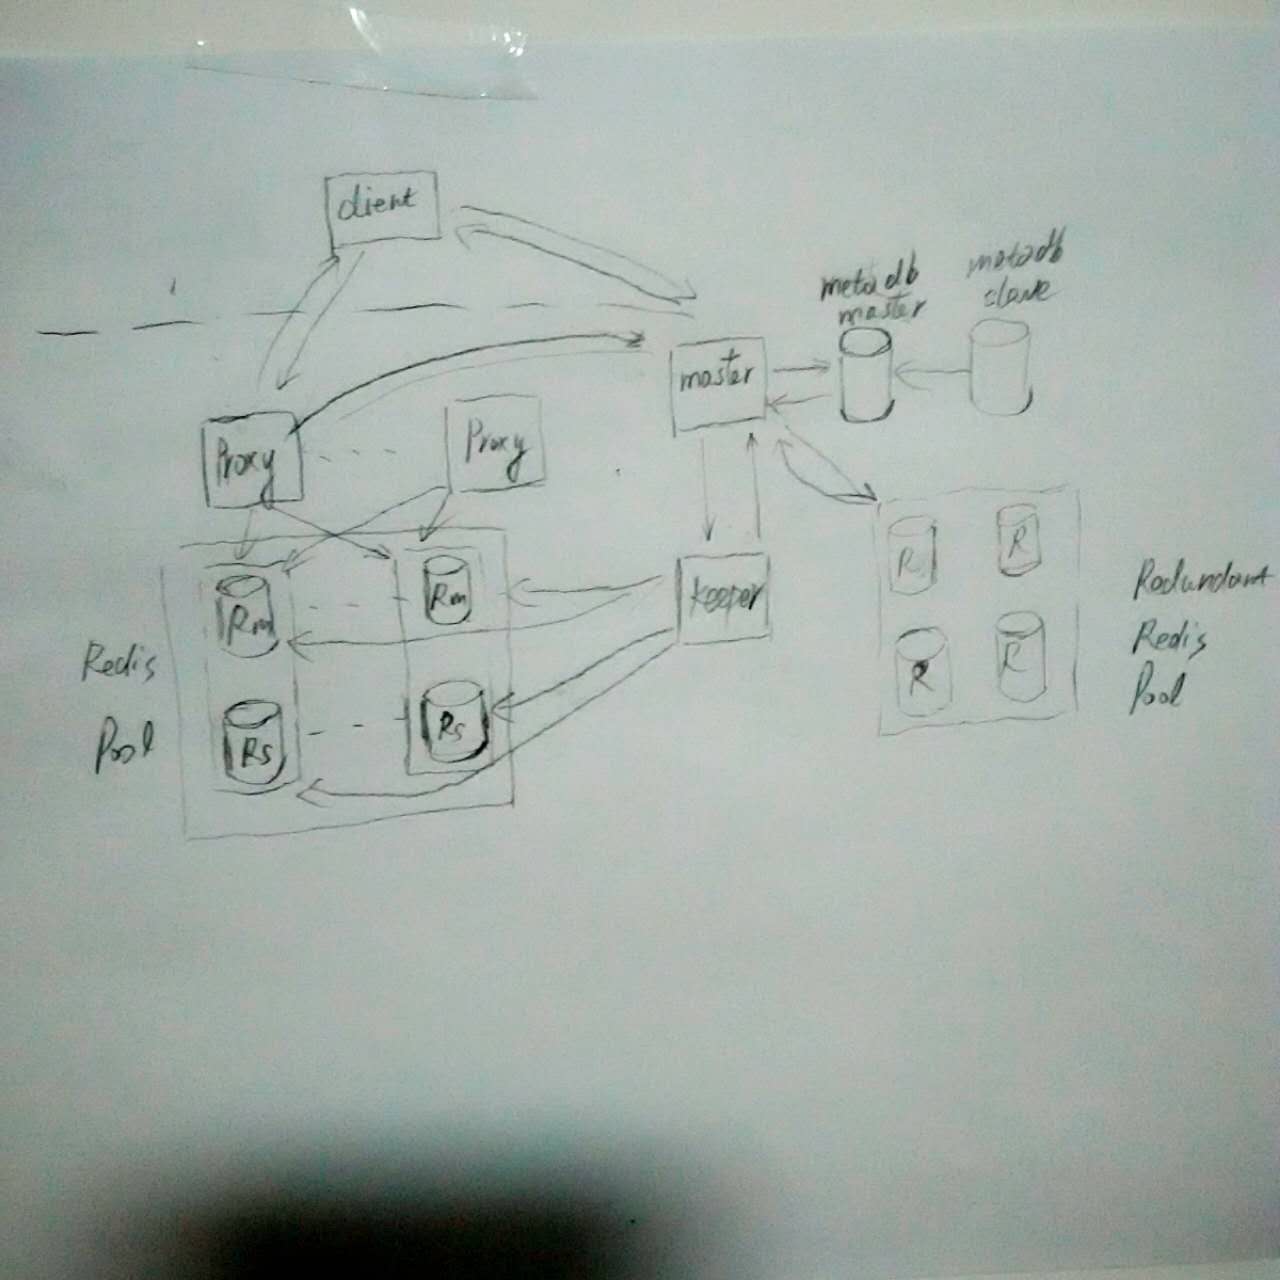 client
metadb
master
metadb
slave
master
Proxy
Proxy
Redis
Pool
Rm
Rm
Rs
Rs
keeper
R
R
R
R
Redundant
Redis
Pool